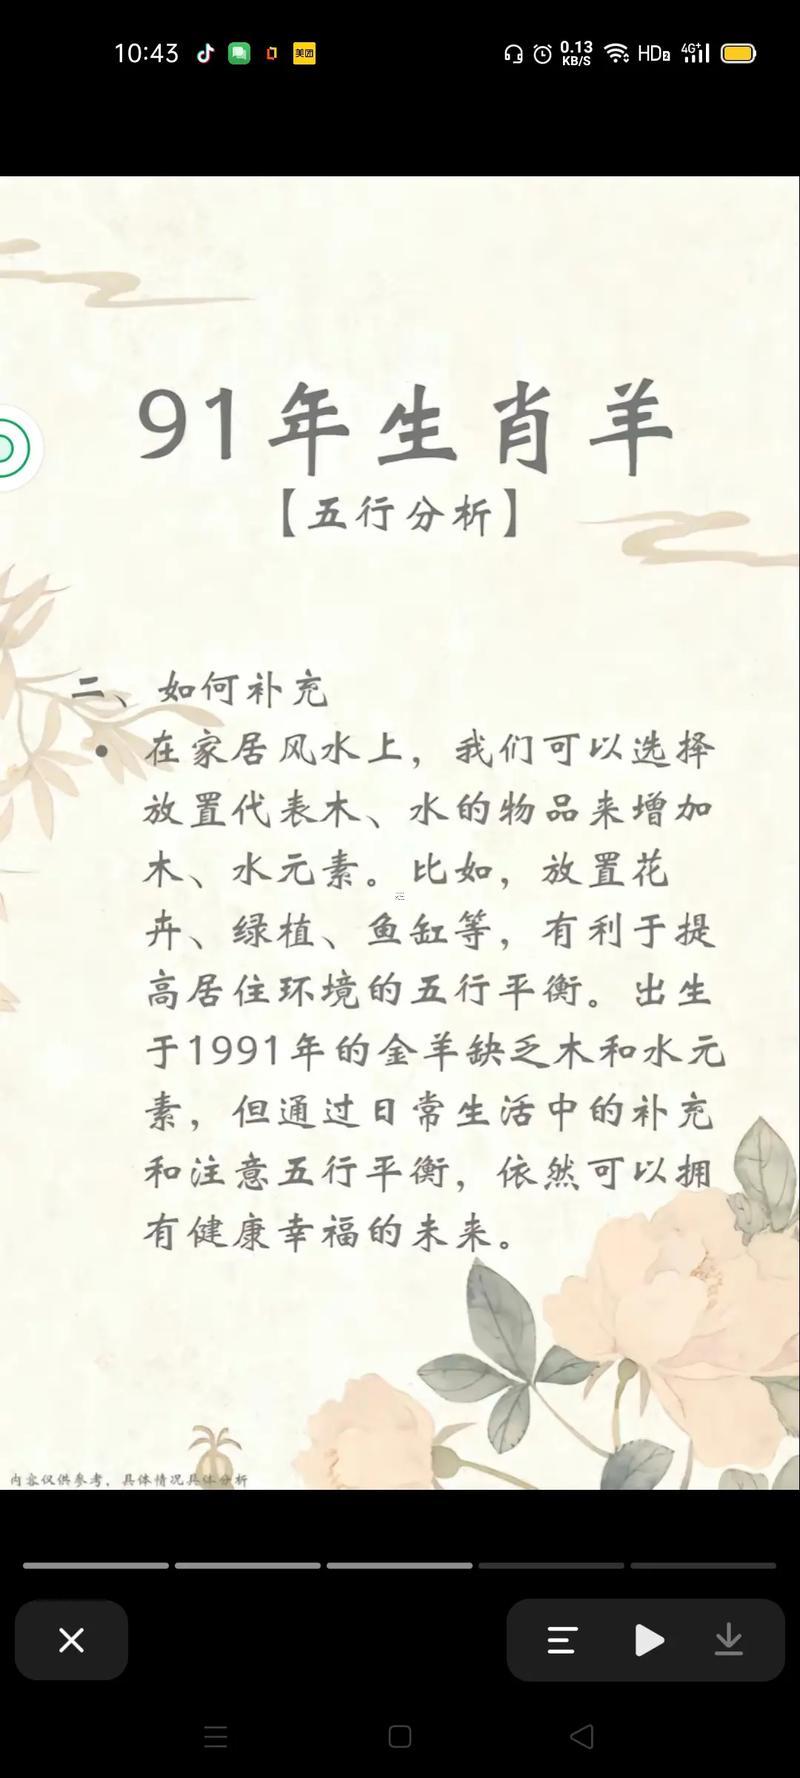 10:43
美团
0.13
KB/S
HD2
4G+
91年生肖羊
【五行分析】
二、如何补充
• 在家居风水上，我们可以选择
放置代表木、水的物品来增加
木、水元素。比如，放置花
卉、绿植、鱼缸等，有利于提
高居住环境的五行平衡。出生
于1991年的金羊缺乏木和水元
素，但通过日常生活中的补充
和注意五行平衡，依然可以拥
有健康幸福的未来。
内容仅供参考，具体情况具体分析